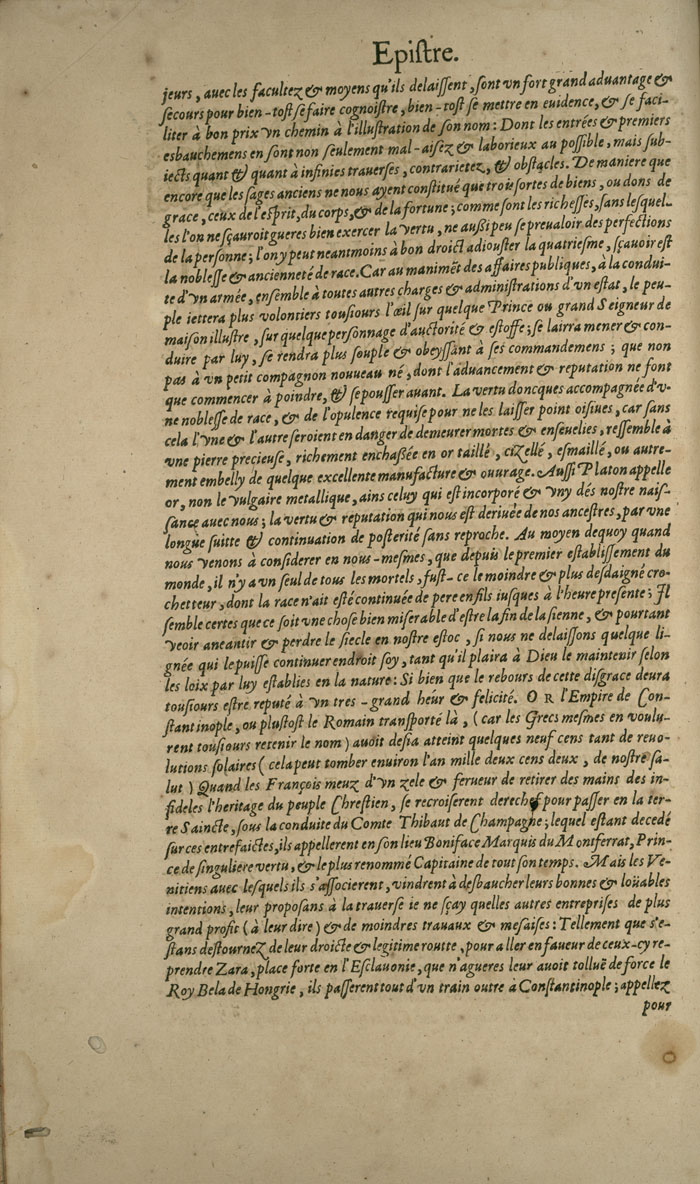 Epiſtre.
jeurs, auec les facultez & moyens qu'ils delaiſſent, ſont vn fort grand aduantage &
ſecours pour bien-toſt ſe faire cognoiſtre, bien-toſt ſe mettre en euidence, & ſe faci-
liter à bon prix vn chemin à l'illuſtration de ſon nom: Dont les entrées & premiers
esbauchemens en ſont non ſeulement mal-aiſez & laborieux au poſſible, mais ſub-
iects quant & quant à infinies trauerſes, contrarietez, & obſtacles. De maniere que
encore que les ſages anciens ne nous ayent conſtitué que trois ſortes de biens, ou dons de
grace, ceux de l'eſprit, du corps, & de la fortune; comme ſont les richeſſes, ſans leſquel-
les l'on ne ſçauroit gueres bien exercer la vertu, ne außi peu ſe preualoir des perfections
de la perſonne; l'on y peut neantmoins à bon droict adiouſter la quatrieſme, ſçauoir eſt
la nobleſſe & ancienneté de race. Car au manimẽt des affaires publiques, à la condui-
te d'vn armée, enſemble à toutes autres charges & adminiſtrations d'vn eſtat, le peu-
ple iettera plus volontiers touſiours l'œil ſur quelque Prince ou grand Seigneur de
maiſon illuſtre, ſur quelque perſonnage d'auctorité & eſtoffe; ſe lairra mener & con-
duire par luy, ſe rendra plus ſouple & obeyſſant à ſes commandemens; que non
pas à vn petit compagnon nouueau né, dont l'aduancement & reputation ne font
que commencer à poindre, & ſe pouſſer auant. La vertu doncques accompagnée d'v-
ne nobleſſe de race, & de l'opulence requiſe pour ne les laiſſer point oiſiues, car ſans
cela l'vne & l'autre ſeroient en danger de demeurer mortes & enſeuelies, reſſemble à
vne pierre precieuſe, richement enchaßée en or taillé, cizellé, eſmaillé, ou autre-
ment embelly de quelque excellente manufacture & ouurage. Auſſi Platon appelle
or, non le vulgaire metallique, ains celuy qui eſt incorporé & vny dés noſtre naiſ-
ſance auec nous; la vertu & reputation qui nous eſt deriuée de nos anceſtres, par vne
longue ſuitte & continuation de poſterité ſans reproche. Au moyen dequoy quand
nous venons à conſiderer en nous-meſmes, que depuis le premier eſtabliſſement du
monde, il n'y a vn ſeul de tous les mortels, fuſt-ce le moindre & plus deſdaigné cro-
chetteur, dont la race n'ait eſté continuée de pere en fils iuſques à l'heure preſente; Il
ſemble certes que ce ſoit vne choſe bien miſerable d'eſtre la fin de la ſienne, & pourtant
veoir aneantir & perdre le ſiecle en noſtre eſtoc, ſi nous ne delaiſſons quelque li-
gnée qui le puiſſe continuer endroit ſoy, tant qu'il plaira à Dieu le maintenir ſelon
les loix par luy eſtablies en la nature: Si bien que le rebours de cette diſgrace deura
touſiours eſtre reputé à vn tres-grand heur & felicité. OR l'Empire de Con-
ſtantinople, ou pluſtoſt le Romain tranſporté là, (car les Grecs meſmes en voulu-
rent touſiours retenir le nom) auoit deſia atteint quelques neuf cens tant de reuo-
lutions ſolaires (cela peut tomber enuiron l'an mille deux cens deux, de noſtre ſa-
lut) Quand les François meuz d'vn zele & ferueur de retirer des mains des in-
fideles l'heritage du peuple Chreſtien, ſe recroiſerent derechef pour paſſer en la ter-
re Saincte, ſous la conduite du Comte Thibaut de Champagne; lequel eſtant decedé
ſur ces entrefaictes, ils appellerent en ſon lieu Boniface Marquis du Montferrat, Prin-
ce de ſinguliere vertu, & le plus renommé Capitaine de tout ſon temps. Mais les Ve-
nitiens auec leſquels ils s'aſſocierent, vindrent à desbaucher leurs bonnes & loüables
intentions, leur propoſans à la trauerſe ie ne ſçay quelles autres entrepriſes de plus
grand profit (à leur dire) & de moindres trauaux & meſaiſes: Tellement que s'e-
ſtans deſtournez de leur droicte & legitime routte, pour aller en faueur de ceux-cy re-
prendre Zara, place forte en l'Eſclauonie, que n'agueres leur auoit tolluë de force le
Roy Bela de Hongrie, ils paſſerent tout d'vn train outre à Conſtantinople; appellez
pour